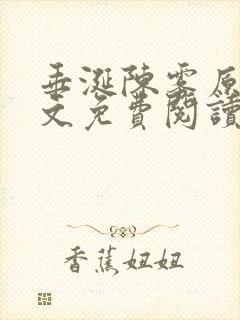 垂涎陳雾原
文免費閱讀
香蕉妞妞